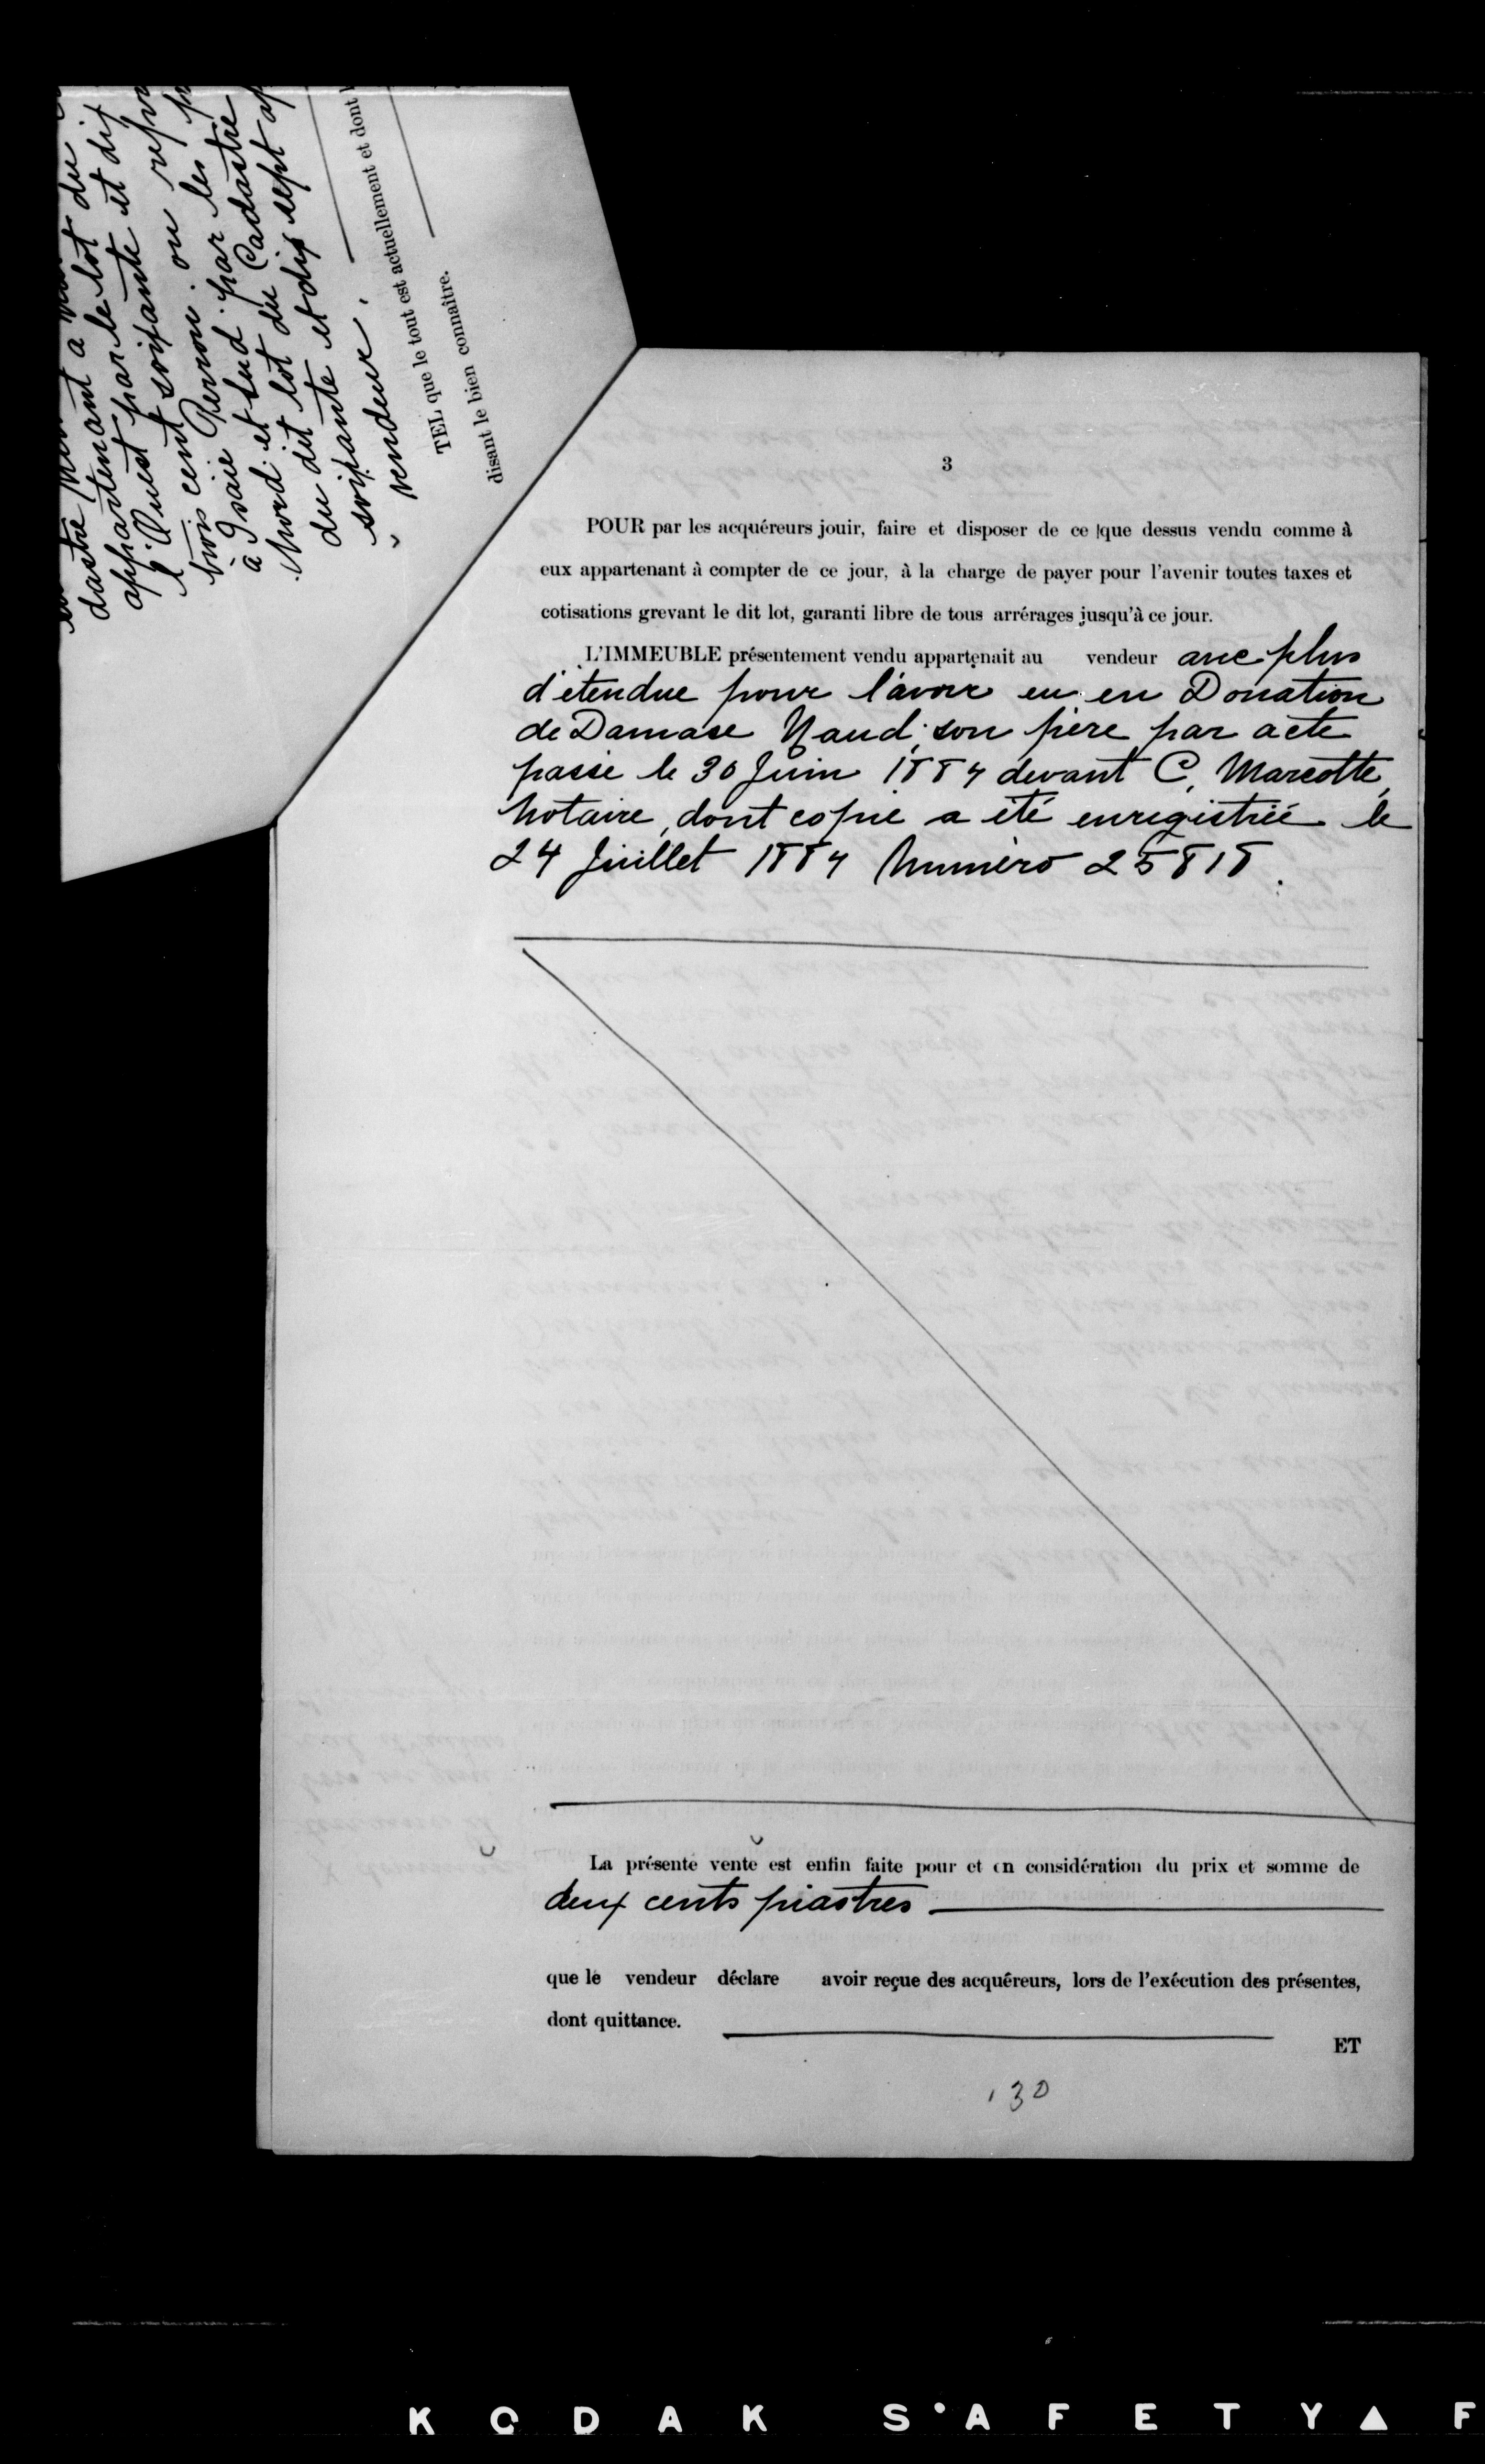 dastre
appartenant à
appartenant par le lot du
l'Ouest soixante et dix
trois cent
à Isaïe Perron ou
Nord et Sud par les
du dit lot du Cadastre
soixante et dix sept
vendeur.
TEL que le tout est actuellement et dont
disant le bien connaître.
3
POUR par les acquéreurs jouir, faire et disposer de ce que dessus vendu comme à
eux appartenant à compter de ce jour, à la charge de payer pour l'avenir toutes taxes et
cotisations grevant le dit lot, garanti libre de tous arrérages jusqu'à ce jour.
L'IMMEUBLE présentement vendu appartenait au vendeur avec plus
d'étendue pour l'avoir eu en Donation
de Damase Naud, son père par acte
passé le 30 Juin 1884 devant C. Marcotte,
Notaire, dont copie a été enregistrée le
24 Juillet 1884 Numéro 25818.
La présente vente est enfin faite pour et en considération du prix et somme de
deux cents piastres
que le vendeur déclare avoir reçue des acquéreurs, lors de l'exécution des présentes,
dont quittance.
ET
130
KODAK SAFETY F